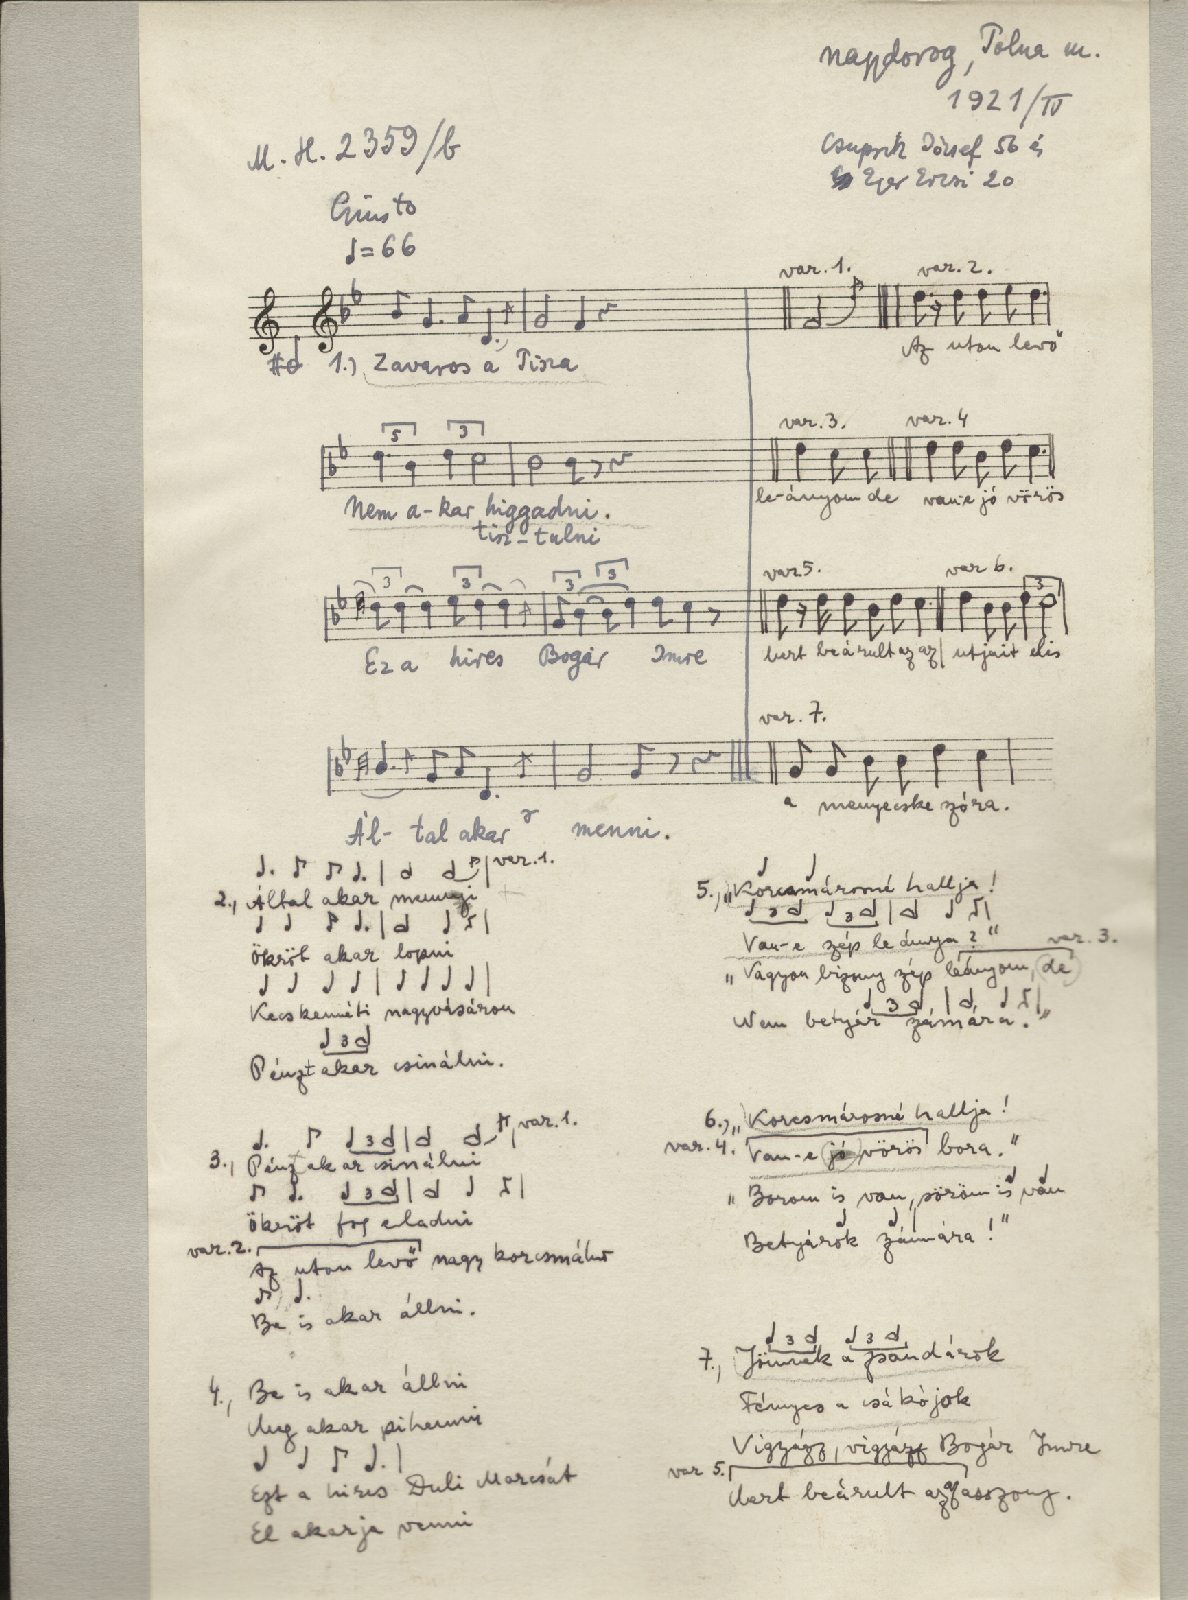 Nagydorog, Tolna m.
1921/IV
M. H. 2359/b
József 56 és
Eger Erzsi 20
Giusto
♩=66
var. 1. var. 2.
1.) Zavaros a Tisza
Az uton levő
5 3
var. 3. var. 4
Nem a-kar higgadni.
tisz-tulni
le-ányom de
van-e jó vörös
3 3 3 3
var 5. var 6. 3
Ez a hires Bogár Imre
bert beárult az az utjait elis
var. 7.
Ál- tal akar menni.
a menyecske szóra.
var. 1.
2., Által akar menni
Ökröt akar lopni
Kecskeméti nagyvásáron
3
Pénzt akar csinálni.
3 var. 1.
3., Pénzt akar csinálni
3
Ökröt fog eladni
var. 2.
Az uton levő nagy korcsmába
Be is akar állni.
4., Be is akar állni
Meg akar pihenni
Ezt a hires Duli Marcsát
El akarja venni
5., „Korcsmárosné hallja!
3 3
Van-e szép leánya?"
var. 3.
„Vagyon bizony szép leányom, de
3
Nem betyár számára."
6., „Korcsmárosné hallja!
var. 4. Van-e jó vörös bora."
„Borom is van, söröm is van
Betyárok számára!"
3 3
7., Jönnek a pandárok
Fényes a csákójok
Vigyázz, vigyázz Bogár Imre
var 5.
Mert beárult az asszony.